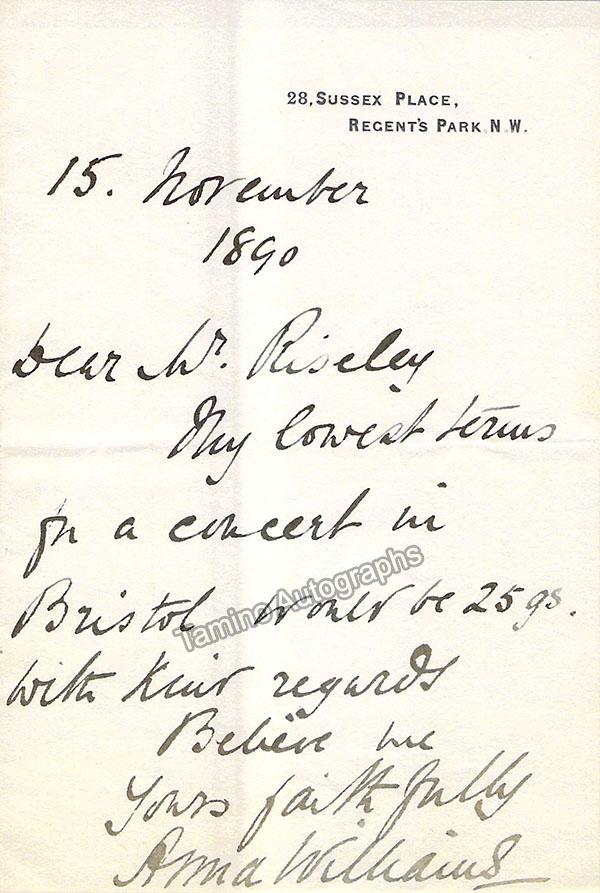 28, SUSSEX PLACE,
REGENT'S PARK. N.W.
15. November
1890
Dear Mr. Riseley
My lowest terms
for a concert in
Bristol would be 25 gs.
With kind regards
Believe me
Yours faithfully
Anna Williams
Tamino Autographs